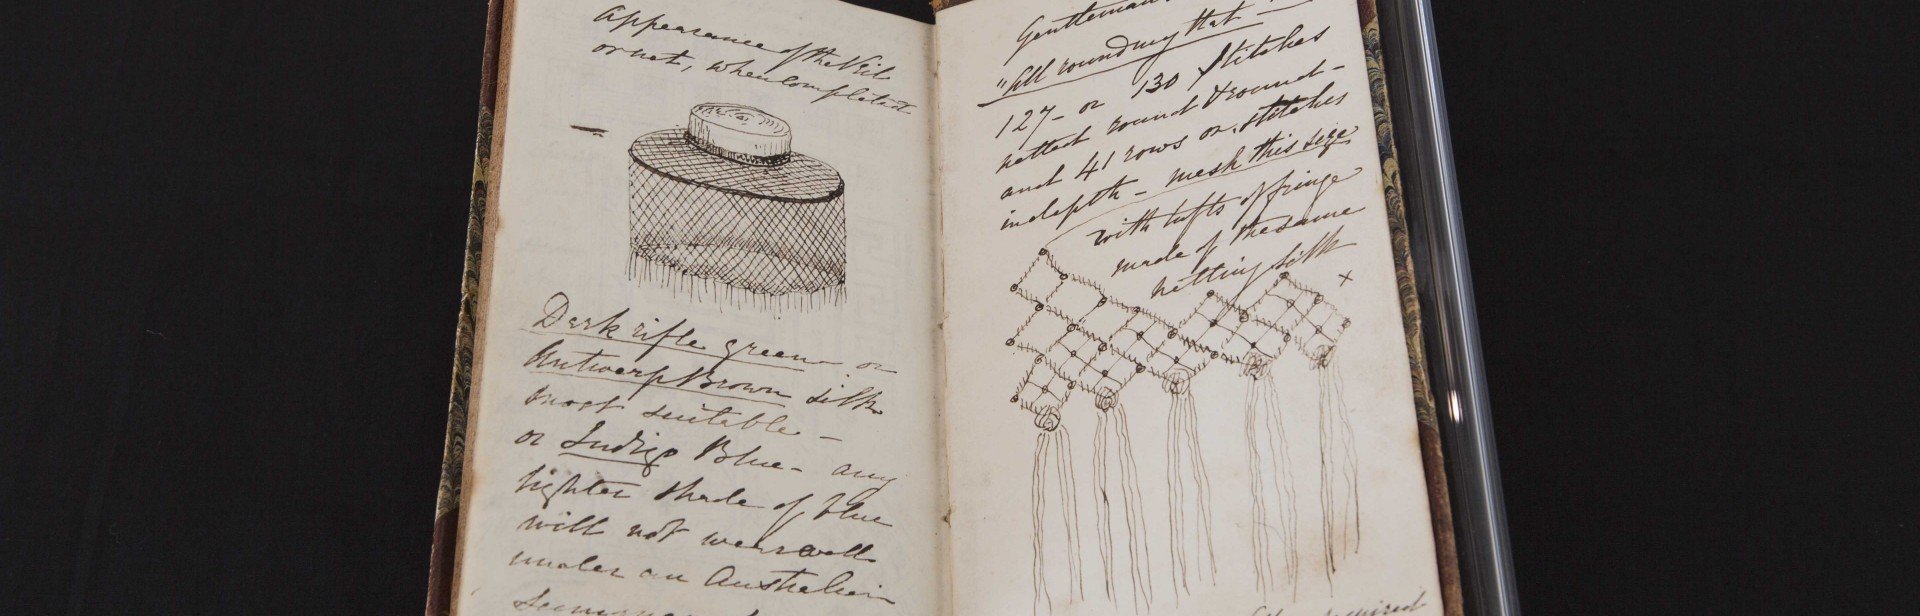 Appearance of the Veil
or net, when completed
Dark rifle green or
Antwerp Brown silk
most suitable -
or Indigo Blue - any
lighter shade of blue
will not wear well
under an Australian
Gentleman's
"All rounding that -
127 - or 130 Stitches
netted round & round -
and 41 rows or stitches
in depth - mesh this size
with tufts of fringe
made of the same
netting silk
x
required